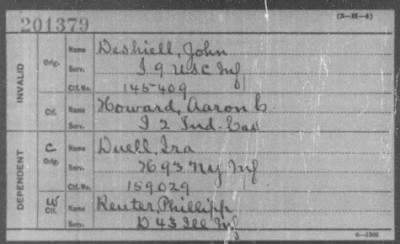 201379
(3—25—4)
INVALID
Orig.
Name Deshiell, John
Serv. I 9 USC Inf
Ctf. No. 145409
Ctf.
Name Howard, Aaron C
Serv. I 2 Ind. Cav
DEPENDENT
C
Orig.
Name Duell, Ira
Serv. H 93 Ny Inf
Ctf. No. 159029
W
Ctf.
Name Reuter, Phillipp
Serv. D 43 Ill Inf